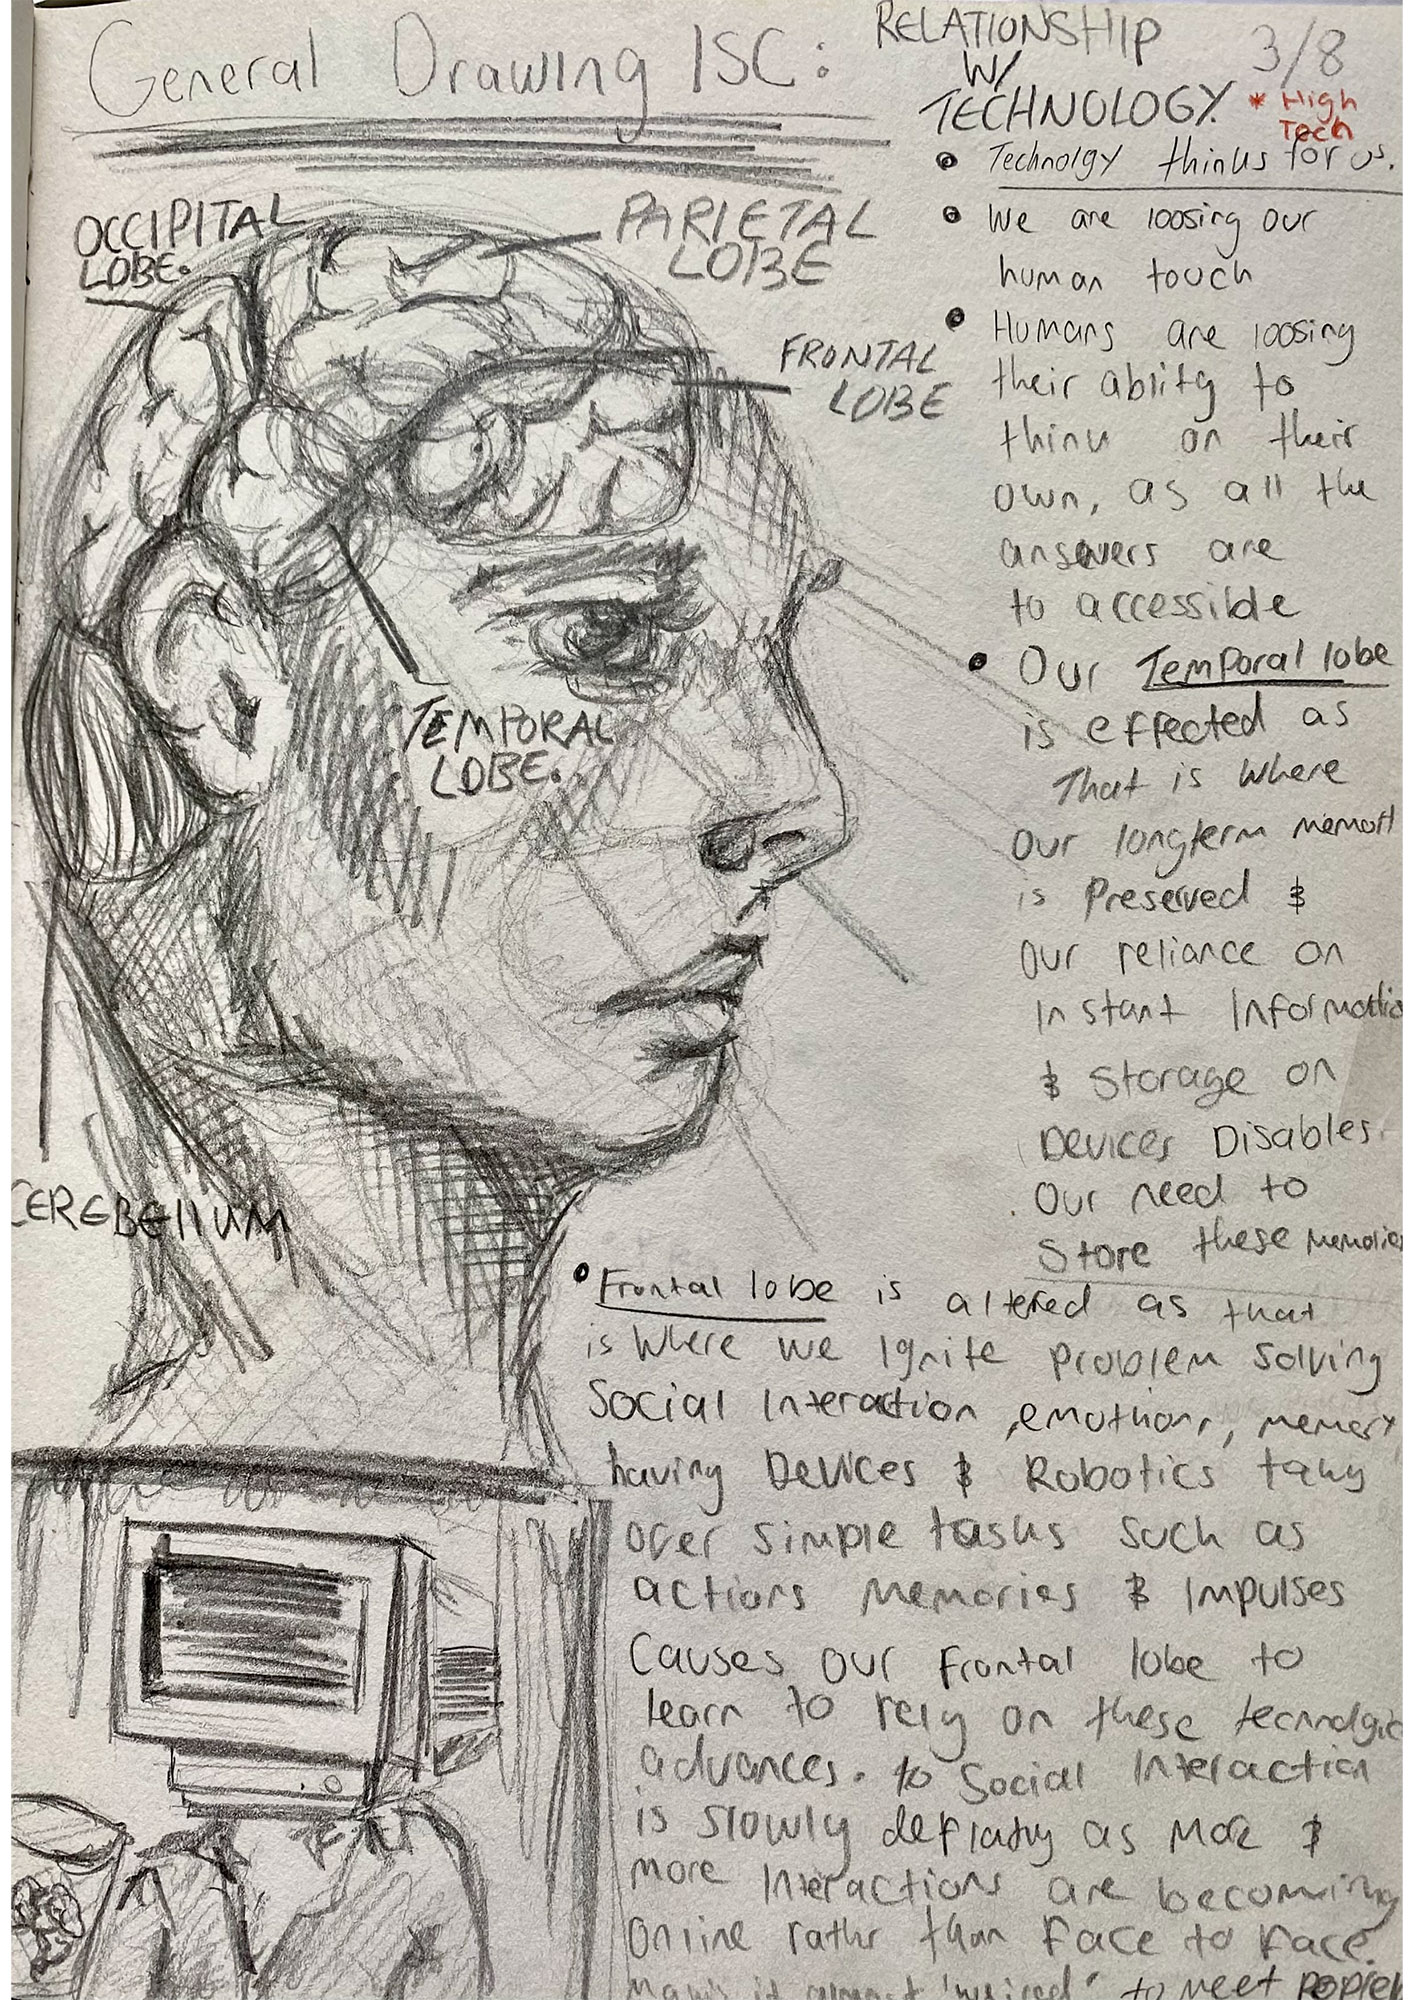 General Drawing ISC:
RELATIONSHIP
W/
TECHNOLOGY
3/8
* High
Tech
• Technolgy thinks for us.
• We are loosing our
human touch
• Humans are loosing
their ablity to
think on their
own, as all the
answers are
to accessible
• Our Temporal lobe
is effected as
That is where
our longterm memory
is Preserved &
our reliance on
Instant Informatio
& Storage on
Devices Disables
our need to
Store these memories
OCCIPITAL
LOBE.
PARIETAL
LOBE
FRONTAL
LOBE
TEMPORAL
LOBE.
CEREBEllUM
• Frontal lobe is altered as that
is where we Ignite problem solving
Social Interaction, emothions, memory
having Devices & Robotics taky
over simple tasks such as
actions Memories & Impulses
Causes our frontal lobe to
learn to rely on these
advances. to Social Interaction
is slowly as More &
more Interactions are becomming
Online rathr than Face to Face.
it almost to meet